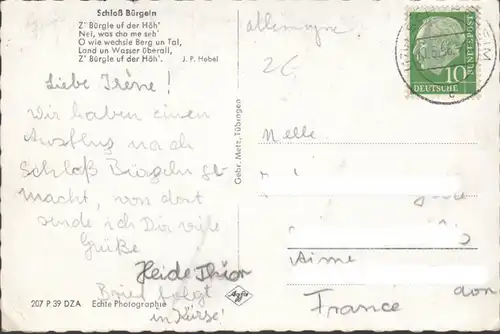 Schloß Bürgeln
Z' Bürgle uf der Höh'
Nei, was cha me seh'
O wie wechsle Berg un Tal,
Land un Wasser überall,
Z' Bürgle uf der Höh'. J. P. Hebel
Liebe Irène!
Wir haben einen
Ausflug nach
Schloß Bürgeln ge-
macht, von dort
sende ich Dir viele
Grüße
Heide
Brief folgt
in Kürze!
207 P 39 DZA Echte Photographie
Gebr. Metz, Tübingen
allemagne
DEUTSCHE
BUNDESPOST
10
Melle
Aime
France